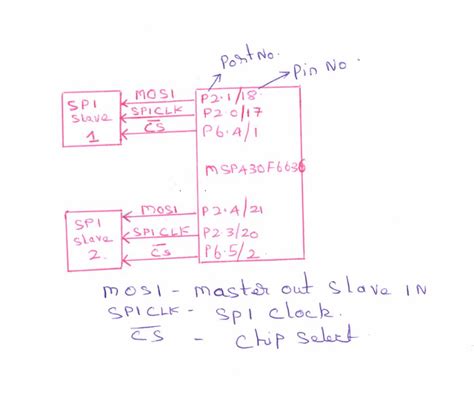 Port No.
Pin No.
MOSI
P2.1/18.
SPI
SPICLK
P2.0/17
Slave
CS
P6.4/1
1
MSP430F6636
MOSI
P2.4/21
SPI
SPICLK
P2.3/20
Slave
CS
P6.5/2.
2.
MOSI - Master out Slave IN
SPICLK - SPI Clock.
CS - Chip Select